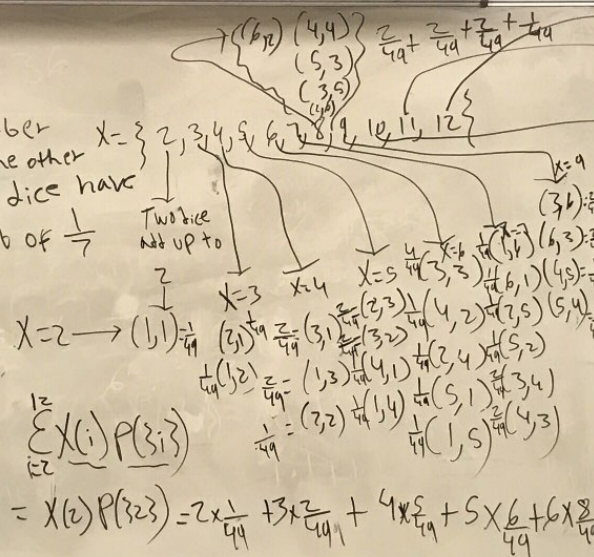 (6,2) (4,4) 2/49 + 2/49 + 2/49 + 1/49
(5,3)
(3,5)
X = { 2, 3, 4, 5, 6, 7, 8, 9, 10, 11, 12 }
ber
e other
dice have
of 1/7
Two dice
add up to
2
X=2 → (1,1) = 1/49
X=3
(2,1) 1/49
1/49 (1,2)
X=4
2/49 = (3,1)
2/49 = (1,3)
1/49 = (2,2)
X=5
2/49 (2,3)
2/49 (3,2)
1/49 (4,1)
1/49 (1,4)
X=6
4/49 (3,3)
1/49 (4,2)
1/49 (2,4)
1/49 (5,1)
1/49 (1,5)
X=7
1/49 (1,6)
1/49 (6,1)
1/49 (2,5)
1/49 (5,2)
2/49 (3,4)
2/49 (4,3)
X=9
(3,6) =
(6,3) =
(4,5) =
(5,4) =
12
Σ X(i) P({i})
i=2
= X(2) P({2}) = 2 × 1/49 + 3 × 2/49 + 4 × 5/49 + 5 × 6/49 + 6 × 8/49